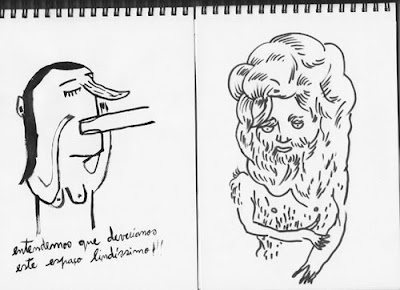 entendemos que deveríamos
este espaço lindíssimo!!!